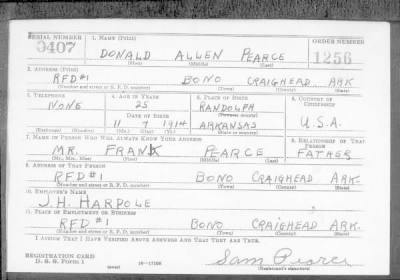 SERIAL NUMBER 1. NAME (Print) ORDER NUMBER
0407 DONALD ALLEN PEARCE 1256
(First) (Middle) (Last)
2. ADDRESS (Print)
RFD#1 BONO CRAIGHEAD ARK
(Number and street or R. F. D. number) (Town) (County) (State)
3. TELEPHONE 4. AGE IN YEARS 5. PLACE OF BIRTH 6. COUNTRY OF CITIZENSHIP
NONE 25 RANDOLPH
DATE OF BIRTH (Town or county)
11 7 1914 ARKANSAS U.S.A.
(Exchange) (Number) (Mo.) (Day) (Yr.) (State or country)
7. NAME OF PERSON WHO WILL ALWAYS KNOW YOUR ADDRESS 8. RELATIONSHIP OF THAT PERSON
MR. FRANK PEARCE FATHER
(Mr., Mrs., Miss) (First) (Middle) (Last)
9. ADDRESS OF THAT PERSON
RFD#1 BONO CRAIGHEAD ARK.
(Number and street or R. F. D. number) (Town) (County) (State)
10. EMPLOYER'S NAME
J.H. HARPOLE
11. PLACE OF EMPLOYMENT OR BUSINESS
RFD #1 BONO CRAIGHEAD ARK.
(Number and street or R. F. D. number) (Town) (County) (State)
I AFFIRM THAT I HAVE VERIFIED ABOVE ANSWERS AND THAT THEY ARE TRUE.
REGISTRATION CARD
D. S. S. Form 1 16—17105 Pearce
(Registrant's signature)